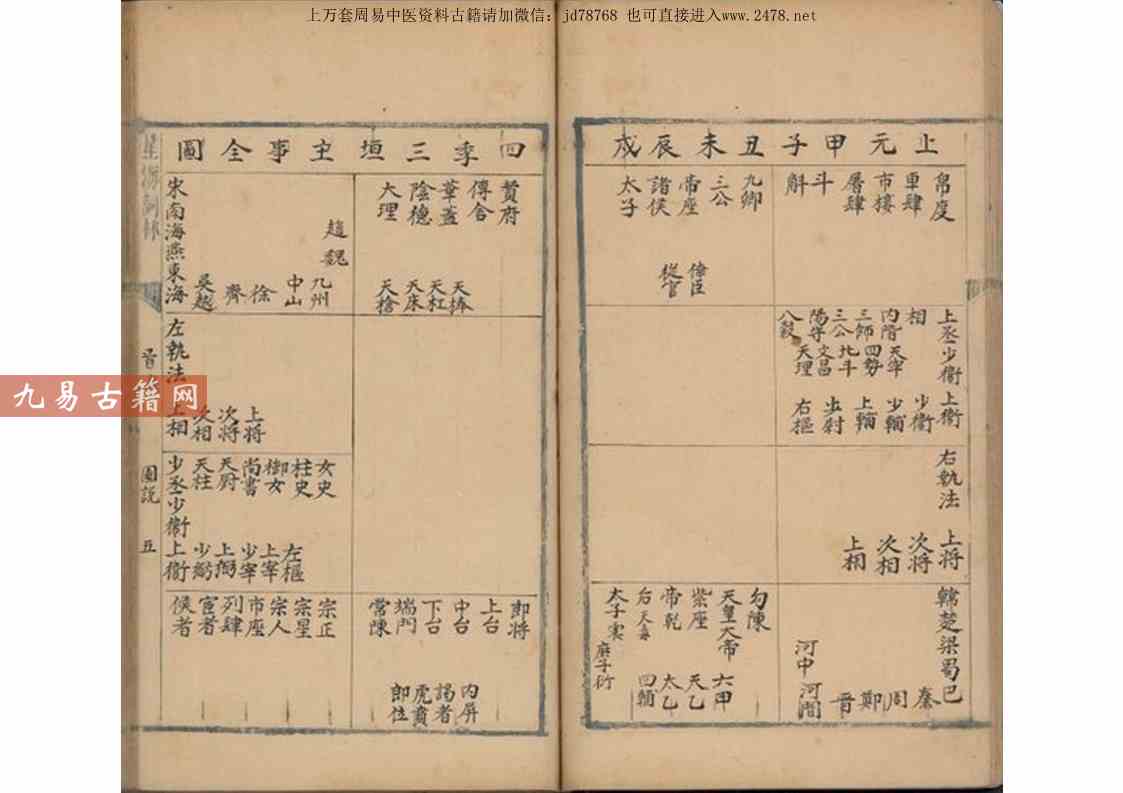 上万套周易中医资料古籍请加微信：jd78768 也可直接进入www.2478.net
上元甲子丑未辰戌
帛度
車肆
市樓
屠肆
斗
斛
九卿
三公
帝座
諸侯
太子
倖臣
從官
上丞少衛上衛
相
少衛
内階
天牢
少輔
三師
四勢
上輔
三公
北斗
少尉
陽守
文昌
右樞
八穀
天理
右執法
上將
次將
次相
上相
韓楚梁蜀巴
秦
周
鄭
晋
河中
河間
勾陳
天皇大帝
六甲
紫座
天乙
帝乾
太乙
后
四輔
太子
庶子
四季三垣主事全圖
傳舍
華蓋
陰德
大理
天棓
天杠
天床
天槍
趙
魏
九州
中山
徐
齊
吳越
宋南海燕東海
左執法
上將
次將
次相
上相
女史
柱史
御女
尚書
天厨
天柱
少丞少衛
左樞
上宰
少宰
上弼
少弼
上衛
郎將
上台
中台
下台
端門
常陳
内屏
謁者
虎賁
郎位
宗正
宗星
宗人
市座
列肆
宦者
侯者
圖説
五
九易古籍网